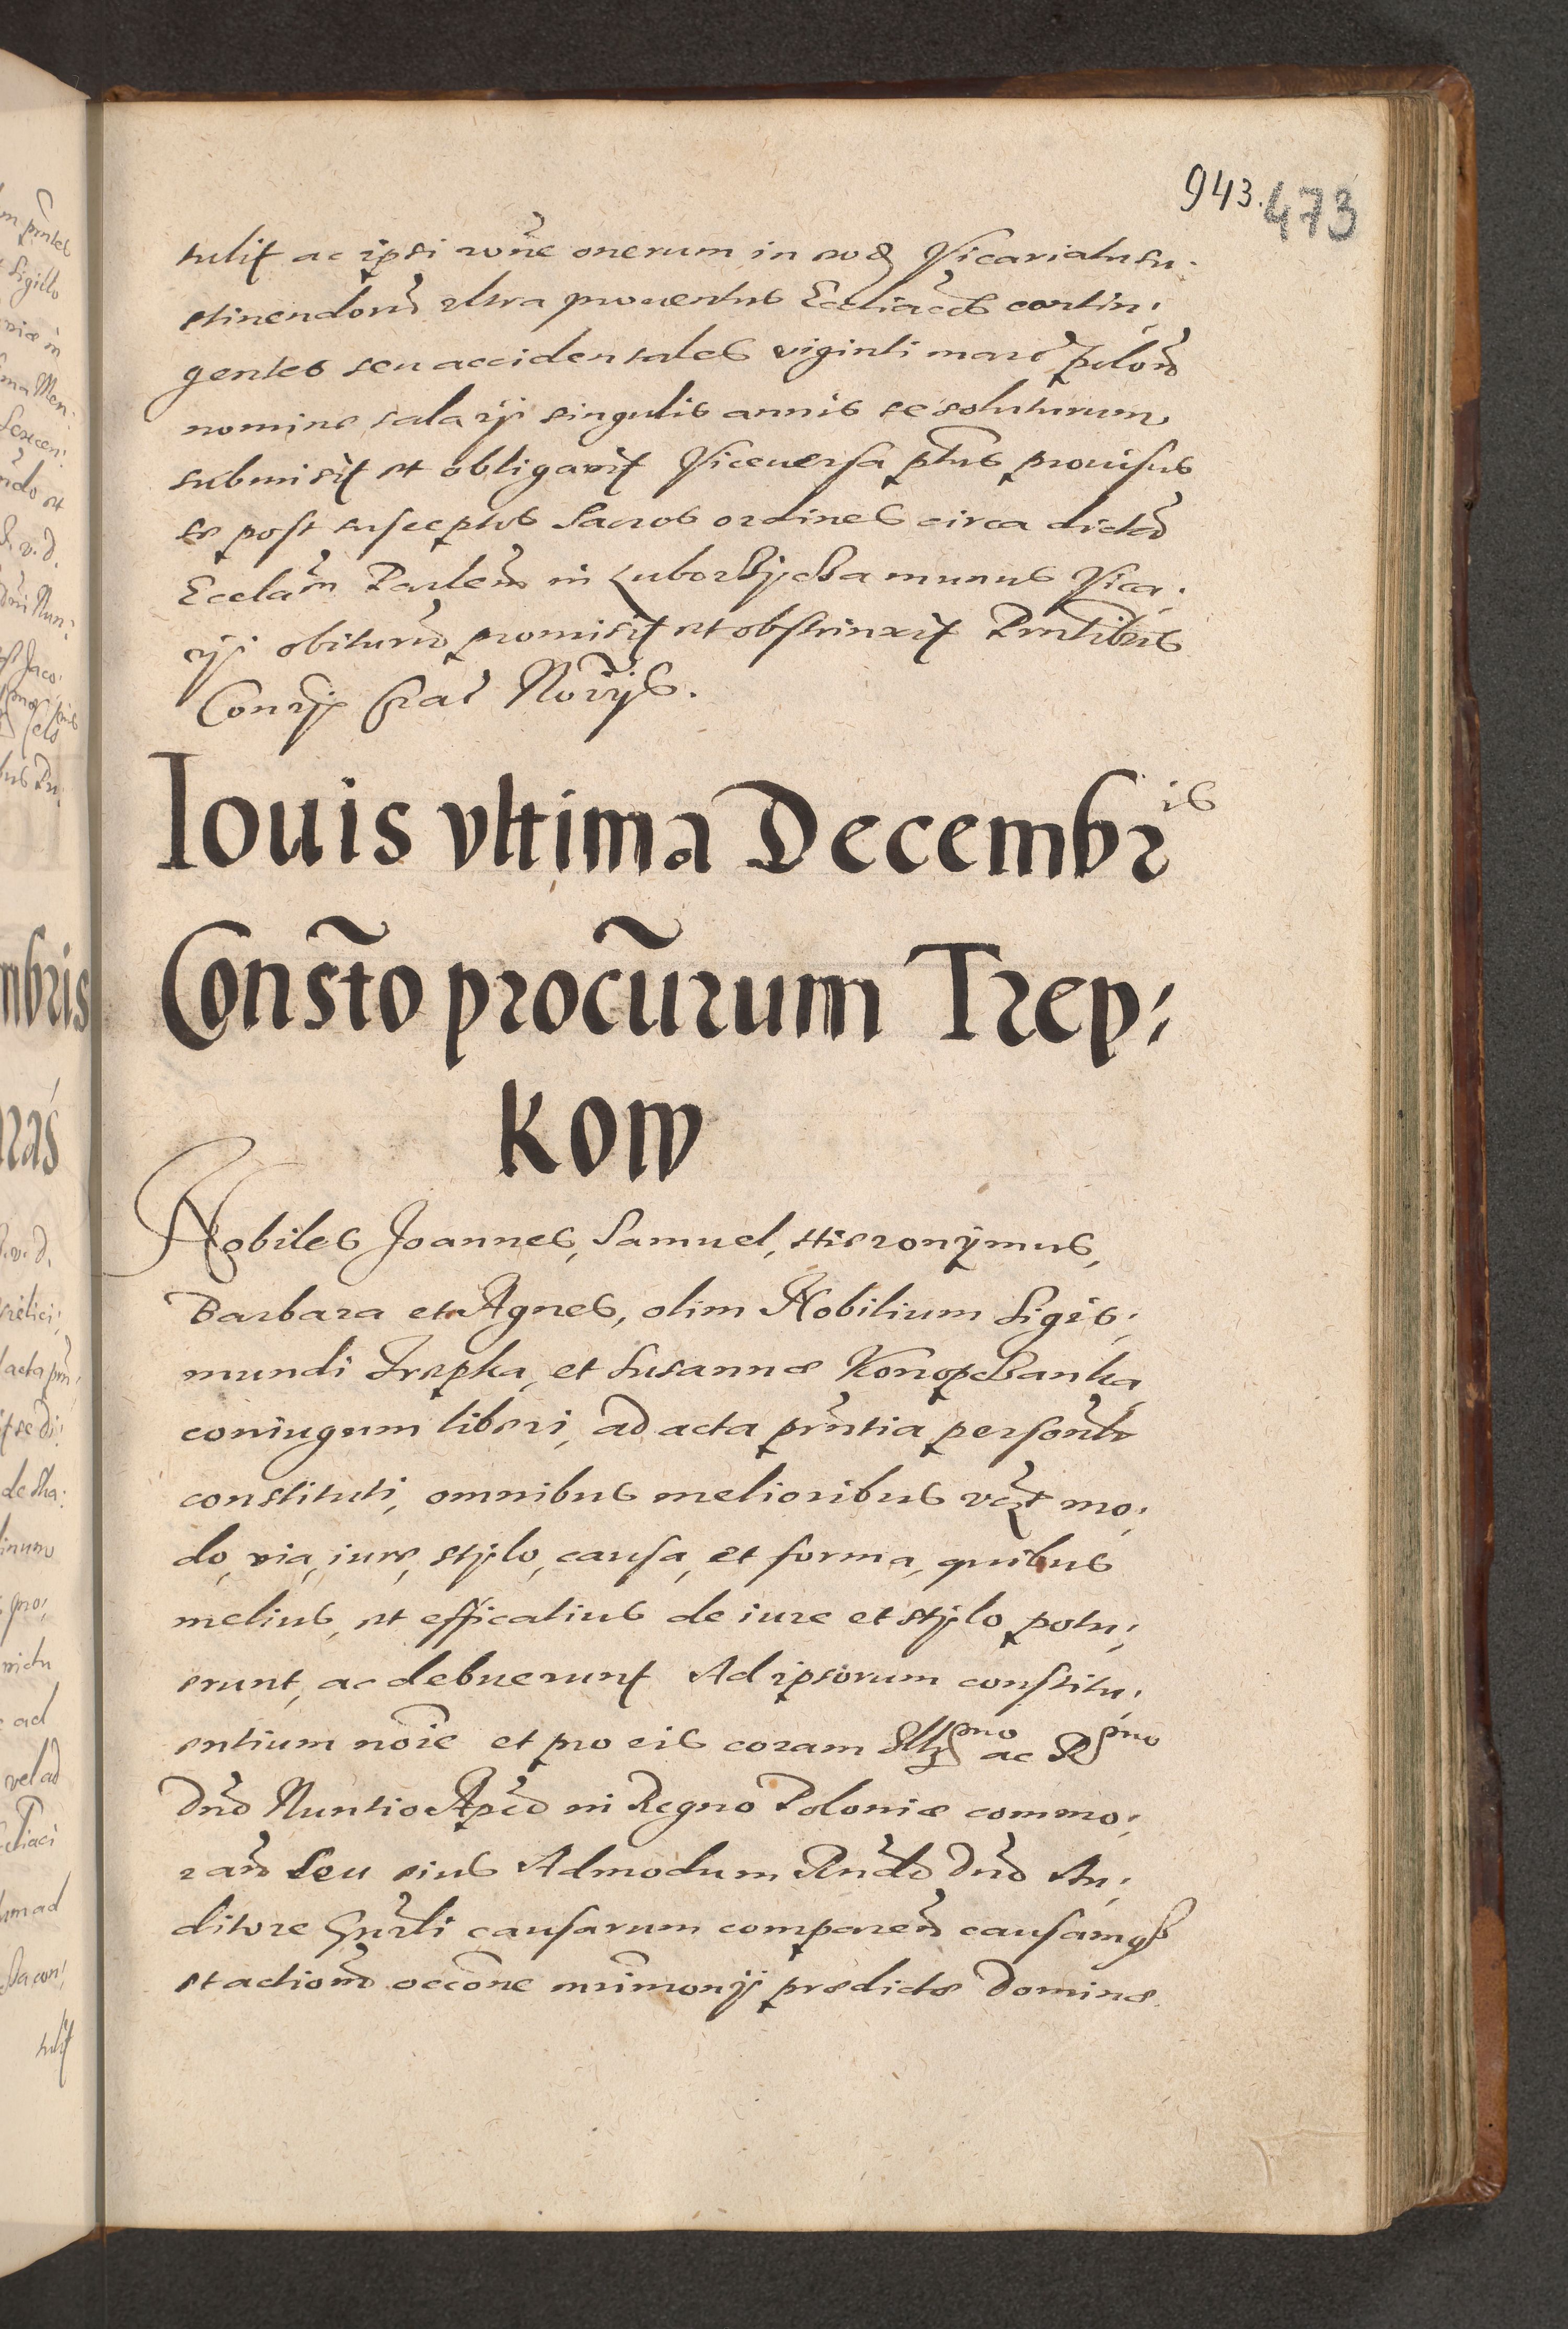 943. 473
tulit ac ipsi rõne onerum in eod Vicariatu su-
stinendorũ ultra prouentus Eccliãcos contin:
gentes seu accidentales viginti marc̃ polon̄
nomine salarij singulis annis se soluturum
submisit et obligavit Viceuersa pt̃us prouisus
se post susceptos Sacros ordines circa dictã
Ecclãm Parlem̃ in Luborzÿcza munus Vica:
rij obiturũ promisit et obstrinxit Pñtibus
Conr̃ij Crac̃ Nor̃ijs.
Iouis vltima Decembris
Const̃o procũrum Trep:
kow
Nobiles Joannes, Samuel, Hieronÿmus,
Barbara et Agnes, olim Nobilium Sigis:
mundi Trepka, et Susannæ Konopczanka
coniugum liberi, ad acta pr̃ntia personlr̃
constituti, omnibus melioribus vc̃zt mo:
do, via, iure, stÿlo, causa, et forma, quibus
melius, et efficatius de iure et stÿlo potu:
erunt, ac debuerunt Ad ipsorum constitu:
entium nõie et pro eis coram Illr̃mo ac Rmo
Dnõ Nuntio Apc̃o in Regno Poloniæ commo:
rañ seu eius Admodum Rnd̃o Dnõ Au:
ditore Gnr̃li causarum comparen̄ causamq
et action̄ occõne mr̃imonij prædictæ Dominæ